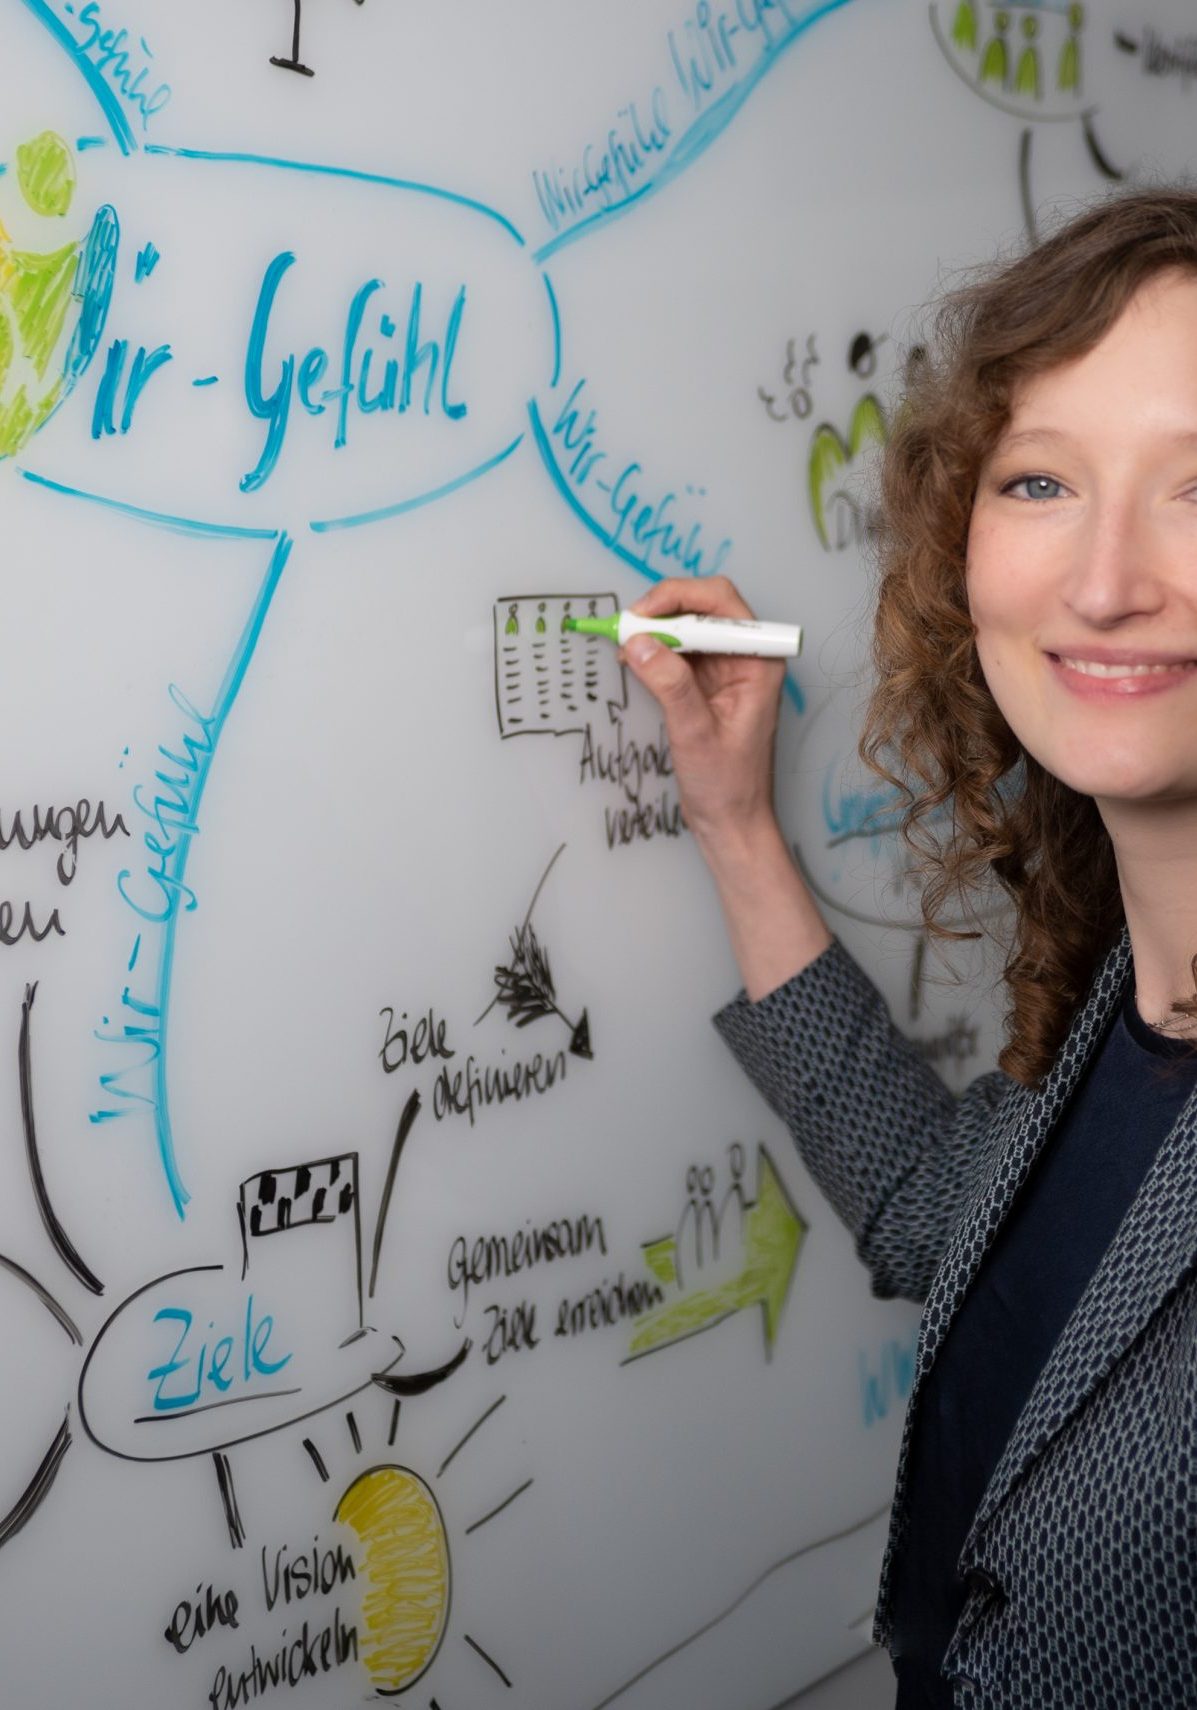 Wir-Gefühl Wir-Ge
Wir-Gefühl
Wir-Gefühl
Wir-Gefühl
Aufga
verteile
ungen
en
Ziele
definieren
gemeinsam
Ziele erreichen
Ziele
eine Vision
entwickeln